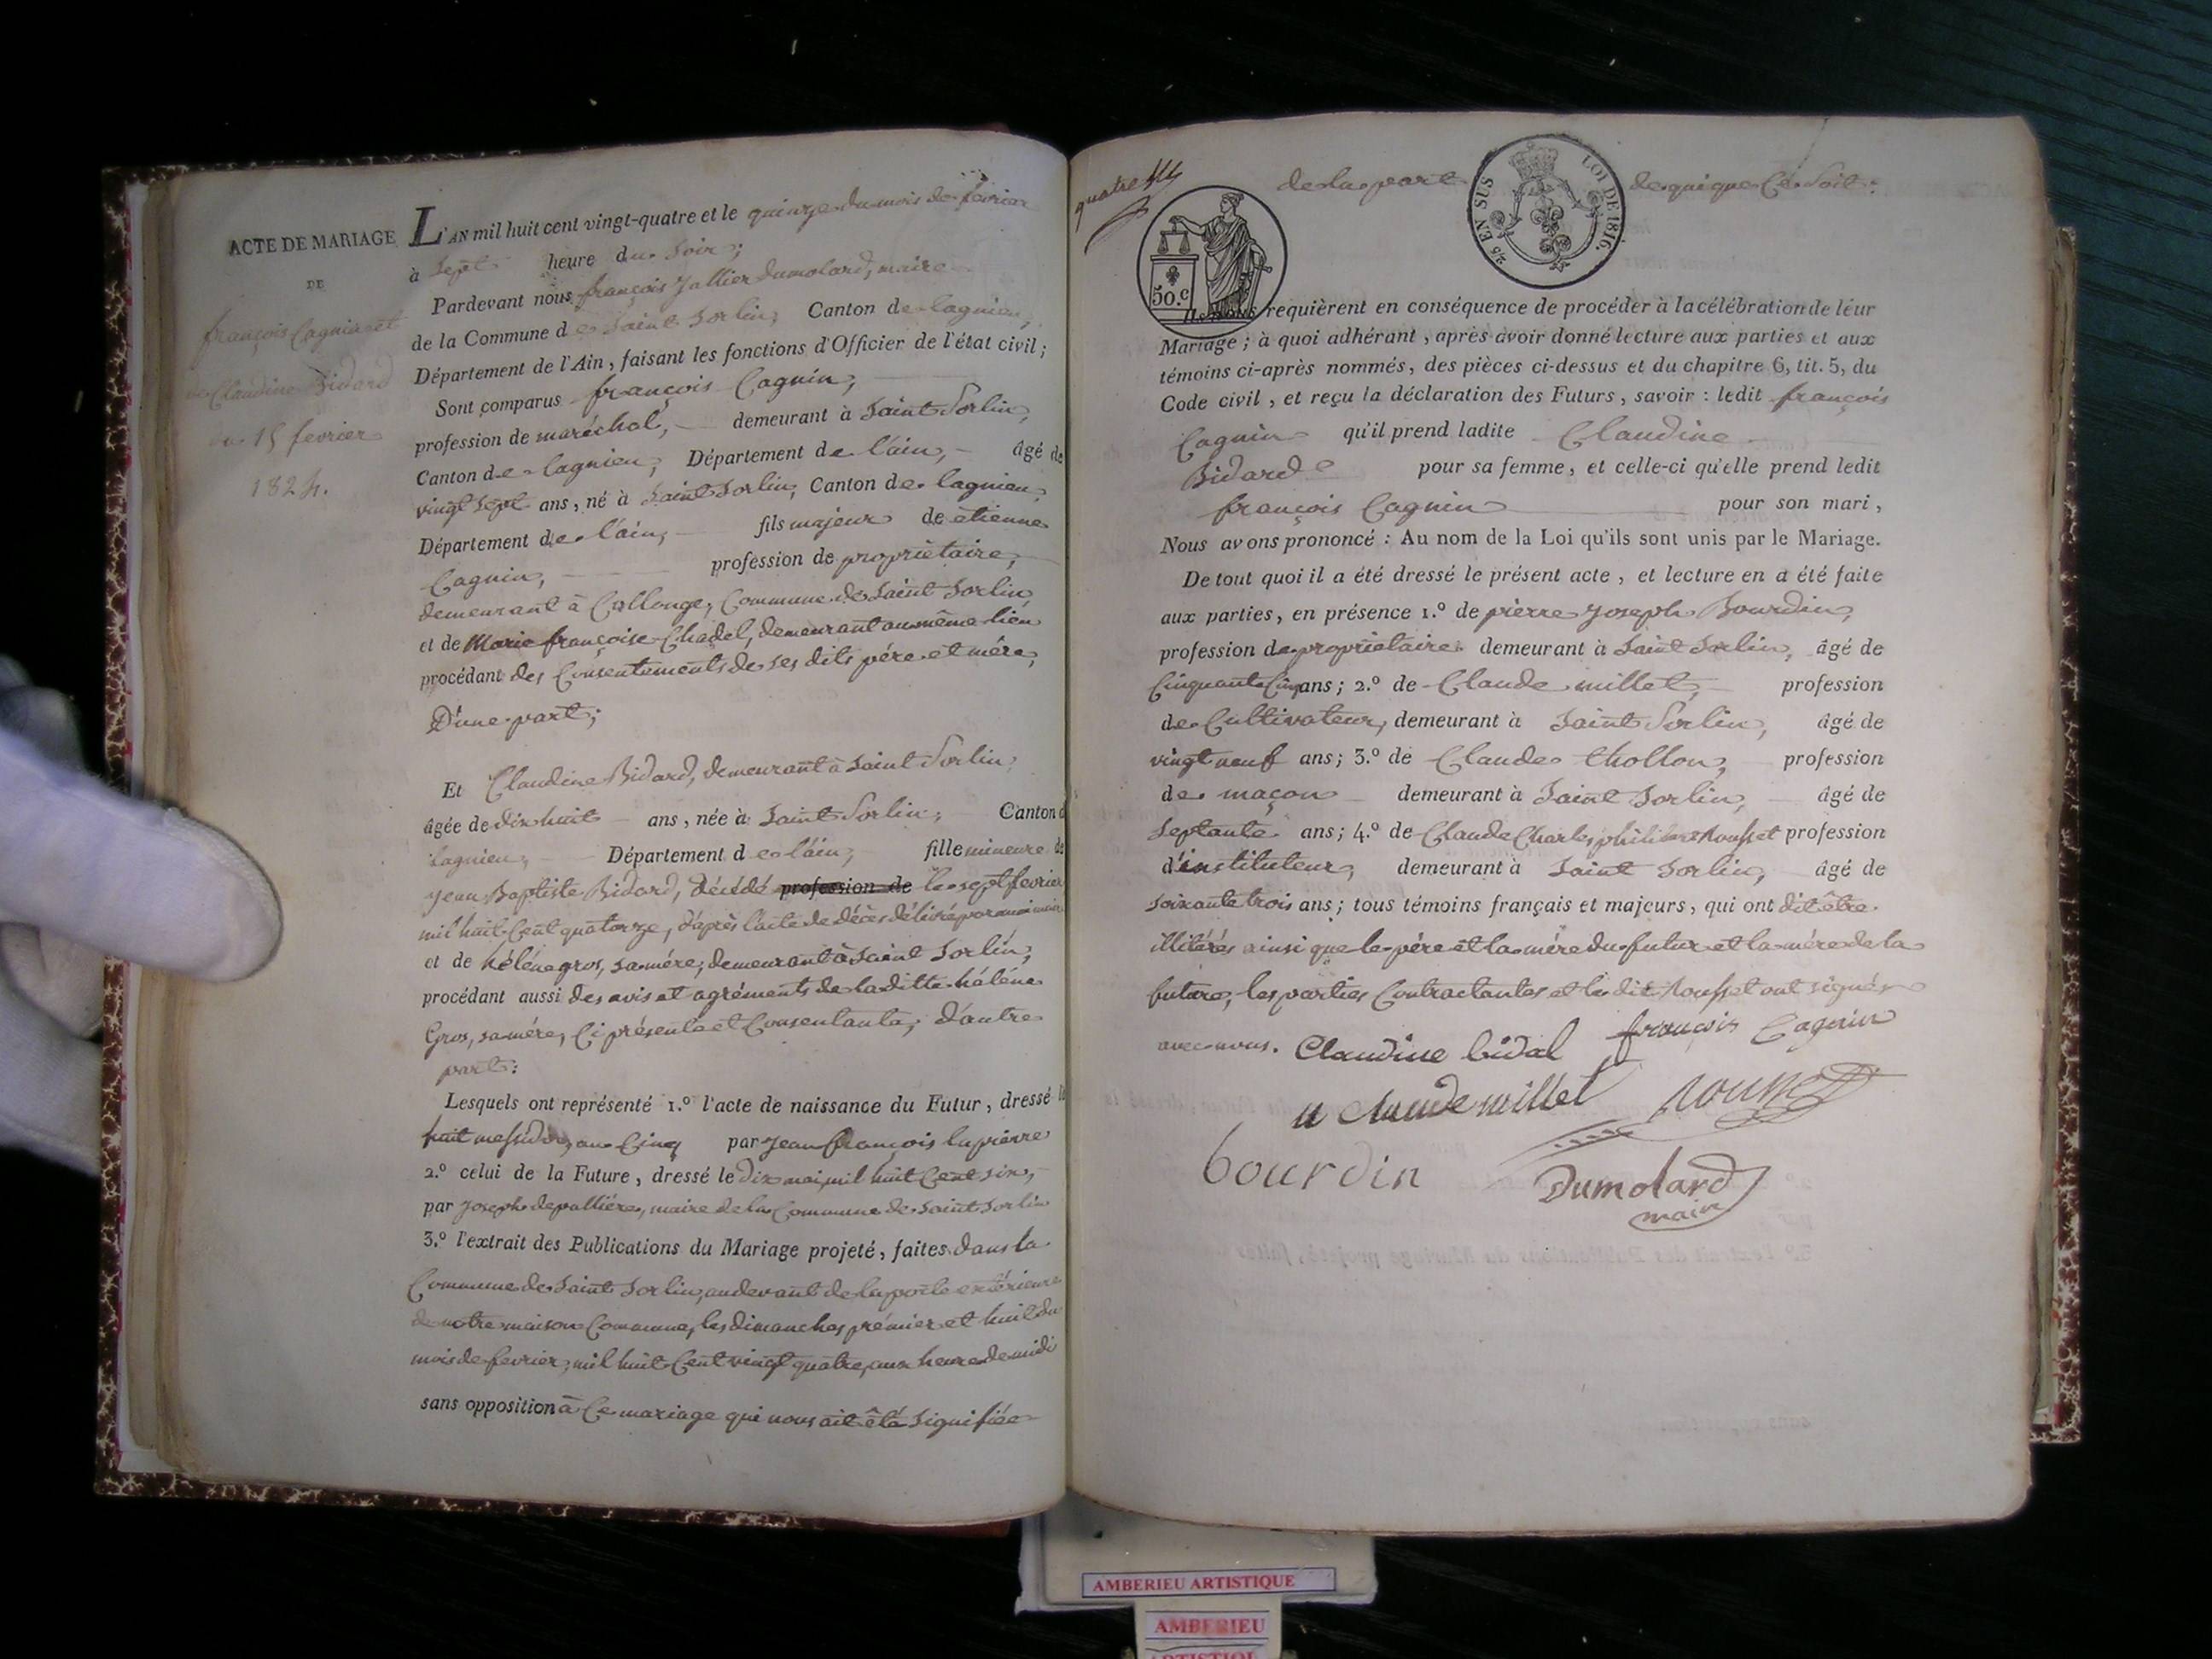 ACTE DE MARIAGE
DE
françois Cagnin et
Claudine Bidard
du 15 fevrier
1824.
L'AN mil huit cent vingt-quatre et le quinze du mois de fevrier
à sept heure du soir;
Pardevant nous françois Jallier dumolard, maire
de la Commune de Saint Sorlin, Canton de lagnieu,
Département de l'Ain, faisant les fonctions d'Officier de l'état civil;
Sont comparus françois Cagnin,
profession de maréchal, demeurant à Saint Sorlin,
Canton de lagnieu, Département de l'ain, âgé de
vingt sept ans, né à Saint Sorlin, Canton de lagnieu,
Département de l'ain, fils majeur de étienne
Cagnin, profession de propriétaire,
demeurant à Collonge, Commune de Saint Sorlin,
et de Marie françoise Chadel, demeurant au même lieu
procédant des Consentements de ses dits pére et mére,
D'une part;
Et Claudine Bidard, demeurant à Saint Sorlin,
âgée de dix huit ans, née à Saint Sorlin, Canton d
lagnieu, Département de l'ain, fille mineure de
jean Baptiste Bidard, décédé profession de le sept fevrier
mil huit Cent quatorze, d'après l'acte de décès délivré par moi maire
et de héléne gros, sa mére, demeurant à Saint Sorlin,
procédant aussi des avis et agréments de la ditte héléne
Gros, sa mére, Ci présente et Consentante, d'autre
part:
Lesquels ont représenté 1.º l'acte de naissance du Futur, dressé le
huit messidor, an Cinq par jean françois lupierre
2.º celui de la Future, dressé le dix mai, mil huit Cent six,
par joseph depalliére, maire de la Commune de Saint Sorlin
3.º l'extrait des Publications du Mariage projeté, faites dans la
Commune de Saint Sorlin, au devant de la porte extérieure
de notre maison Commune, les dimanches prémier et huit du
mois de fevrier, mil huit Cent vingt quatre, aux heure de midi
sans opposition à Ce mariage qui nous ait été signifiée
quatre
de la part de qui que Ce soit:
50.c
25 EN SUS
LOI DE 1816.
requièrent en conséquence de procéder à la célébration de leur
Mariage; à quoi adhérant, après avoir donné lecture aux parties et aux
témoins ci-après nommés, des pièces ci-dessus et du chapitre 6, tit. 5, du
Code civil, et reçu la déclaration des Futurs, savoir: ledit françois
Cagnin qu'il prend ladite Claudine
Bidard pour sa femme, et celle-ci qu'elle prend ledit
françois Cagnin pour son mari,
Nous avons prononcé: Au nom de la Loi qu'ils sont unis par le Mariage.
De tout quoi il a été dressé le présent acte, et lecture en a été faite
aux parties, en présence 1.º de pierre joseph Bourdin,
profession de propriétaire demeurant à Saint Sorlin, âgé de
Cinquante Cinq ans; 2.º de Claude millet, profession
de Cultivateur, demeurant à Saint Sorlin, âgé de
vingt neuf ans; 3.º de Claude thollon, profession
de maçon demeurant à Saint Sorlin, âgé de
septante ans; 4.º de Claude Charles philibert Rousset profession
d'instituteur, demeurant à Saint Sorlin, âgé de
soixante trois ans; tous témoins français et majeurs, qui ont dit être
illitérés ainsi que le pére et la mére du futur et la mére de la
future, les parties Contractantes et le dit Rousset ont signés
avec nous. Claudine bidal françois Cagnin
Claude millet Rousset
bourdin
Dumolard
maire
AMBERIEU ARTISTIQUE
AMBERIEU
ARTISTIQUE